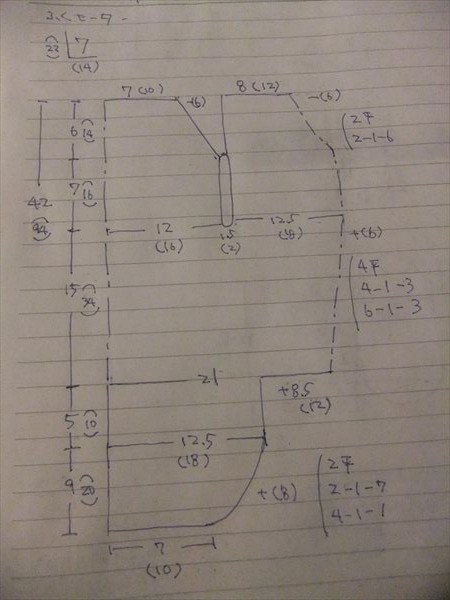 22 7
(14)
7 (10) 8 (12)
-(6) -(6)
2平
2-1-6
6 (14)
7 (16)
42
(94)
12 1.5 12.5
(16) (2) (18)
+(6)
4平
4-1-3
6-1-3
15 (34)
21
+8.5
(12)
5 (10)
12.5
(18)
9 (20)
+(8)
2平
2-1-7
4-1-1
7
(10)